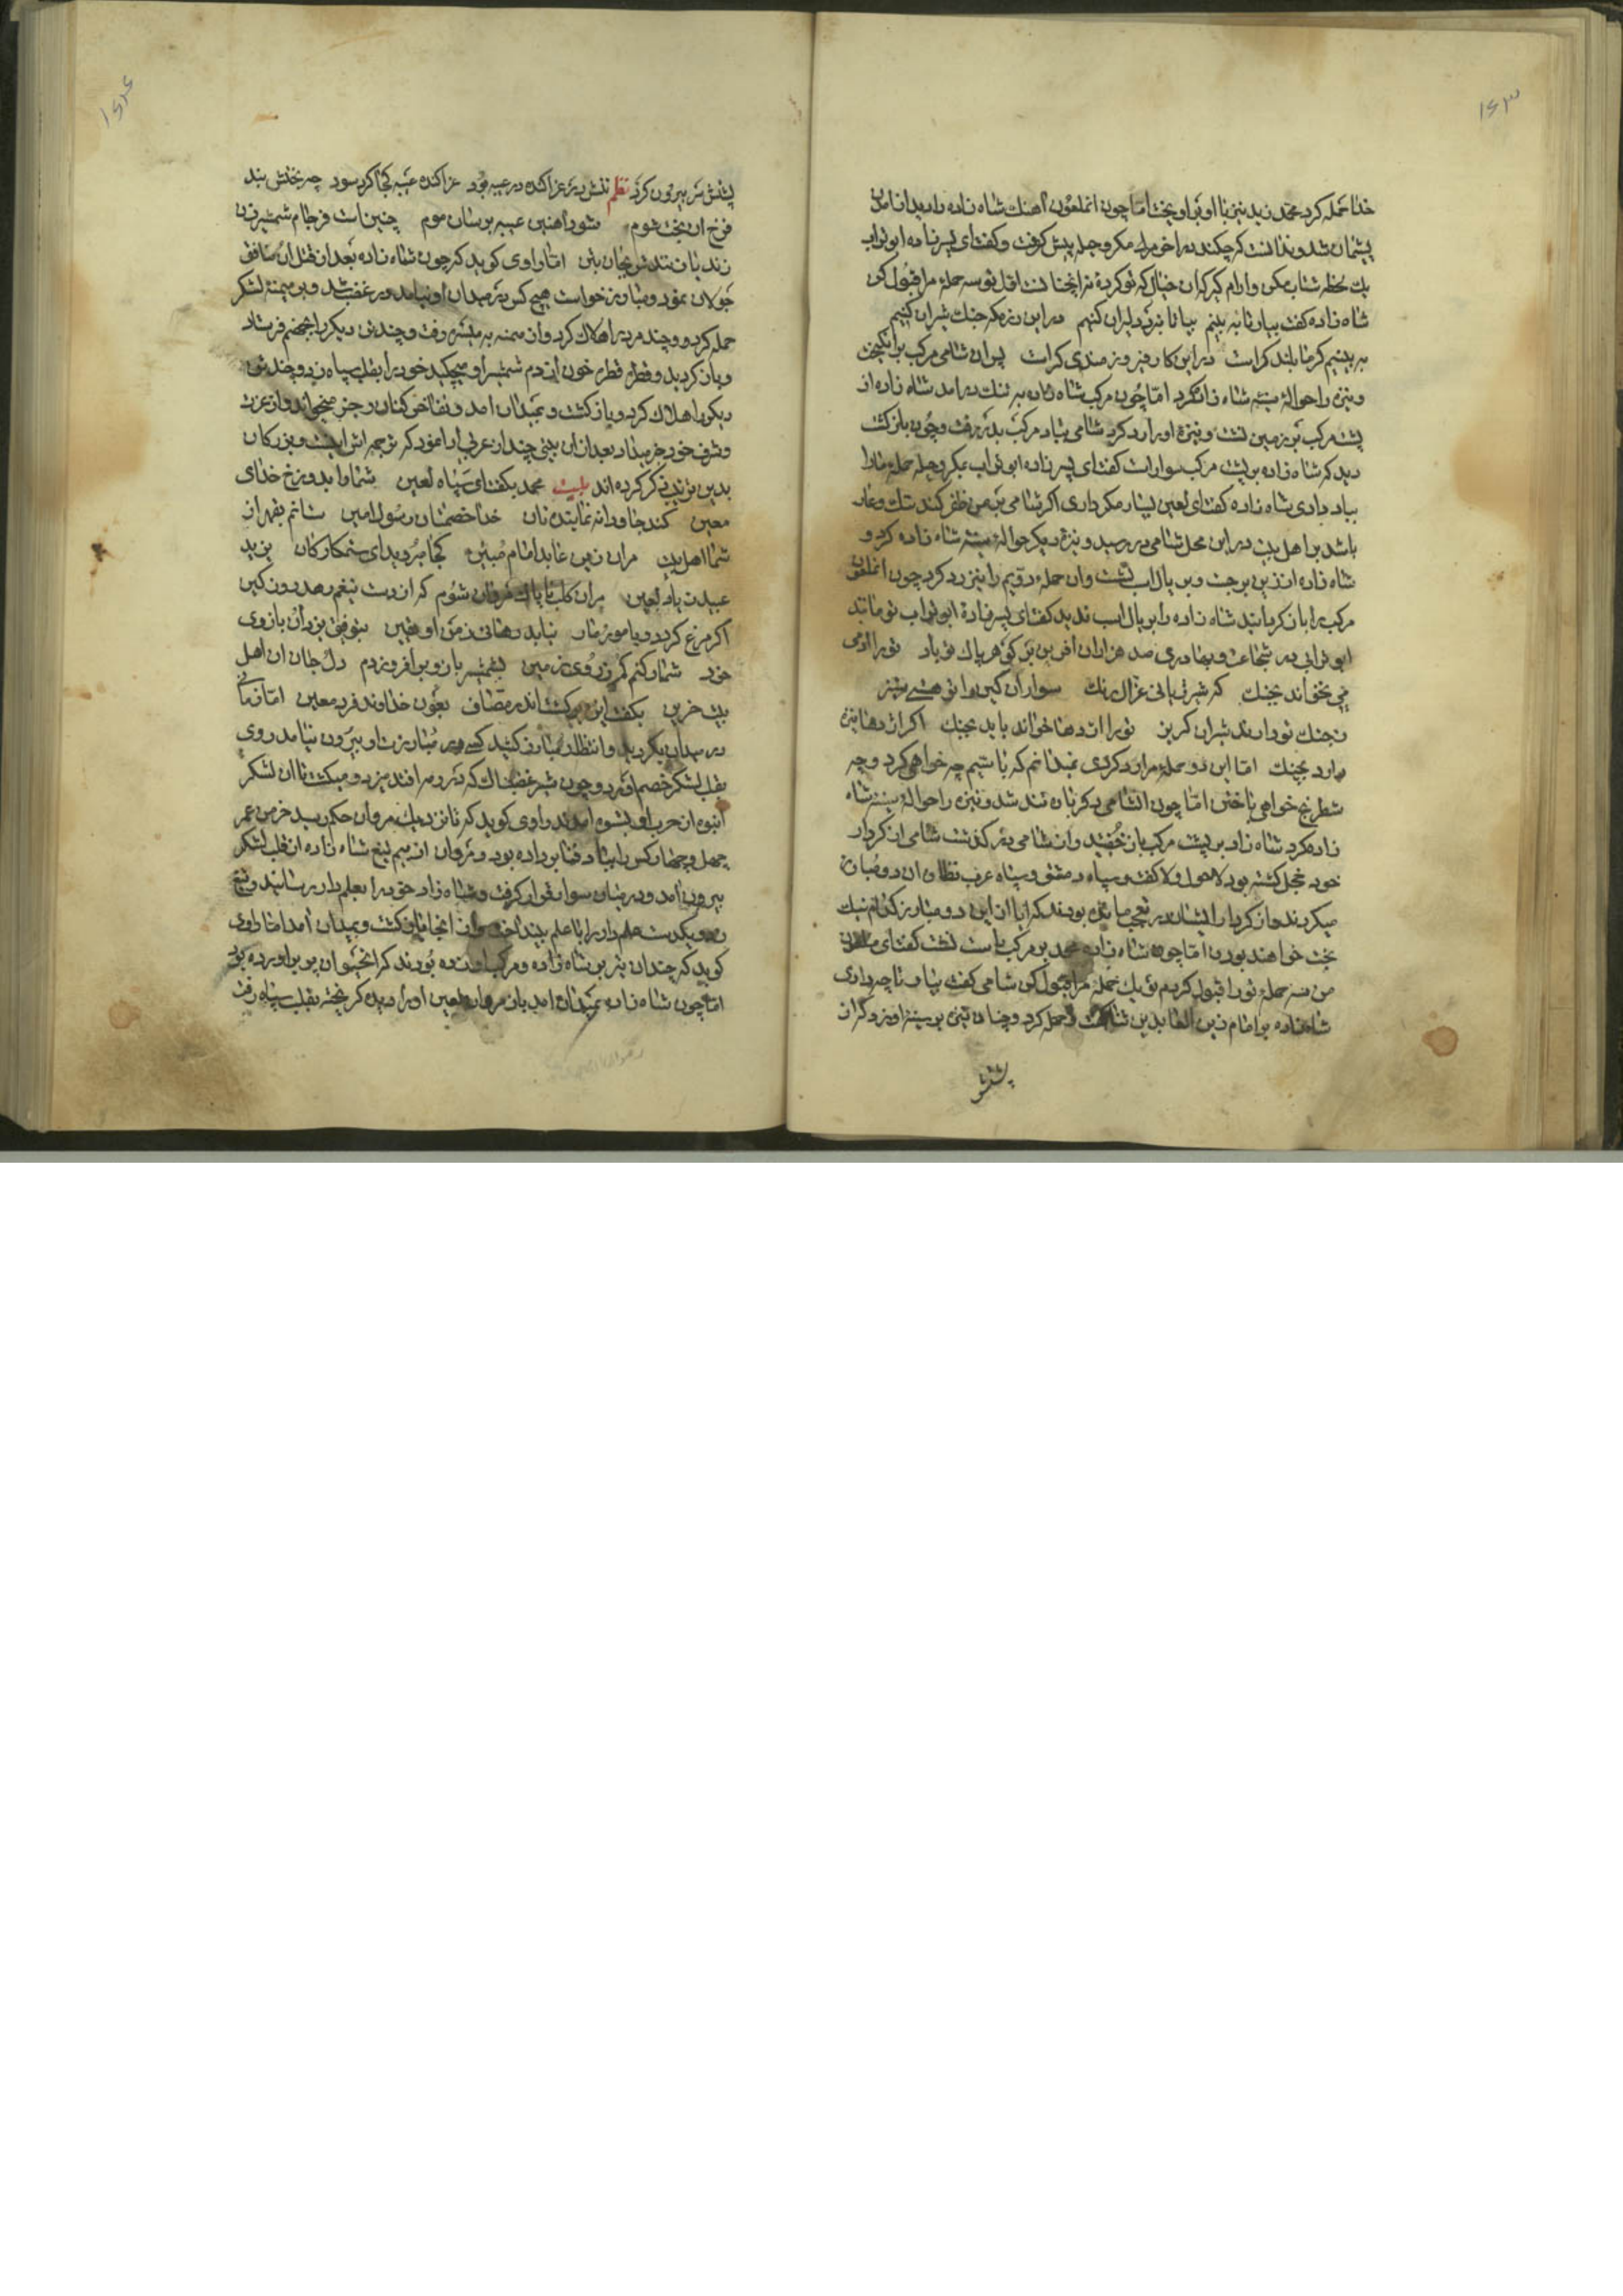 ۱۶۳
خدا حمله کرد محمد زید نیز با او بر اویخت اما چون انملعون اهنک شاه زاده را دید از امدن
پشیمان شد و ندانست که چکند در اخر مرله مکر و حیله پیش کرفت و کفت ای پسرزاده ابو تراب
یک لحظه شتاب مکن و ارام کیر که ان خیال که تو کردهٔ نه انچنانست اول تو سه حمله مرا قبول کن
شاه زاده کفت بیار تا به بینم بیا تا نبرد دلیران کنیم در این رزمکه جنک شیران کنیم
به بینیم کز ما بلندی کراست در این کار فیروزمندی کراست پس ان شامی مرکب بر انکیخت
و نیزه را حوالهٔ سینه شاه زاده کرد اما چون مرکب شاه زاده به تنک در امد شاه زاده از
پشت مرکب بر زمین نشست و نیزهٔ او را رد کرد شامی بتاد مرکب بدر رفت و چون باز کشت
دید که شاه زاده بر پشت مرکب سوار است کفت ای پسرزاده ابو تراب بمکر و حیله حمله ما را
بباد دادی شاه زاده کفت ای لعین بسیار مکر داری اکر شامی بر من ظفر کند ننک و عار
باشد بر اهل بیت در این محل شامی در رسید و نیزه دیکر حوالهٔ سینه شاه زاده کرد و
شاه زاده از زین بر جست و بر یال اسب نشست و ان حمله دویم را نیز رد کرد چون انملعون
مرکب را باز کردانید شاه زاده را بر یال اسب ندید کفت ای پسرزادهٔ ابو تراب تو مانند
ابو ترابی در شجاعت و بهادری صد هزاران افرین بر کوهر پاک تو باد تو را ادمی
می نخواند بجنک که شیر ژیانی غزال رنک سواران کین را توهستی ستیز
ز جنک تو دارند شیران کریز تو را اژدها خواند باید بجنک اکر اژدها نیزه
دارد بچنک اما این دو حمله مرا رد کردی نمیدانم که تا سیم چه خواهی کرد و چه
شطرنج خواهی باختن اما چون انشامی دکر باره تند شد و نیزه را حوالهٔ سینه شاه
زاده کرد شاه زاده بر پشت مرکب باز خفتید و ان شامی در کذشت شامی از کردار
خود خجل کشته بود لاحول ولا کفت و سپاه دمشق و سپاه عرب نظاره ان دو مبارز
میکردند و از کردار ایشان در تعجب مانده بودند که ایا از این دو مبارز کدام نیک
بخت خواهند بودن اما چون شاه زاده محمد بر مرکب راست نشست کفت ای ملعون
من سه حمله تو را قبول کردم تو یک حمله مرا قبول کن شامی کفت بیار تا چه داری
شاه زاده بر امام زین العابدین ثنا کفت و حمله کرد و چنان نیزه بر سینهٔ او زد که از
پشتش
۱۶۴
پشتش سر بیرون کرد نظم تنش در غزاکنده در عیبه بود غزاکنده عیبه کجا کرد سود چه بختش بند
فرخ از بخت شوم شود اهنین عیبه بر سان موم چنین است فرجام شمشیر زن
زند یا زنندش بجان بر بتن اما راوی کوید که چون شاه زاده بعد از قتل ان منافق
جولان نمود و مبارز خواست هیچ کس در میدان او نیامد در غضب شد و بر میمنه لشکر
حمله کرد و چند مرد را هلاک کرد و از میمنه به میسره رفت و چندی دیکر را بجهنم فرستاد
و باز کردید و قطره قطره خون از دم شمشیر او میچکید خود را بقلب سپاه زد و چند تن
دیکر را هلاک کرد و باز کشت و بمیدان امد و تفاخر کنان رجز میخواند و از عزت
و شرف خود خبر میداد بعد از ان بیتی چند از عربی ادا نمود که ترجمه اش اینست و بزرکان
بدین ترتیب ذکر کرده اند بیت محمد بکفت ای سپاه لعین شما را بدوزخ خدای
معین کند جاودانه نمایند تان خدا خصمتان رسول امین ستانم بقهر از
شما اهل بیت مر ان زین عابد امام مبین کجا میروید ای ستمکارکان یزید
عبید زیاد لعین مر ان کلب ناپاک مروان شوم که از دست تیغم رهد روز کین
اکر مرغ کردد و یا مور و مار نیابد رهائی ز من او همین بتوفیق یزدان و بازوی
خود شمار کنم کم ز روی زمین بشمشیر بازو بر افروزدم دل و جان ان اهل
بیت حزین بکفت این و برکشت اندر مصاف بعون خداوند فرد معین اما زمانی
در میدان بکردید و انتظار مبارز کشید کسی در مبارزت او بیرون نیامد روی
بقلب لشکر خصم اورد و چون شیر غضبناک که در رمه افتد میزد و میکشت تا ان لشکر
انبوه از حرب او بستوه امدند راوی کوید که تا نزدیک مروان حکم رسید خرمن عمر
چهل و چهار کس را بباد فنا بر داده بود و مروان از بیم تیغ شاه زاده از قلب لشکر
بیرون امد و در میان سوار قرار کرفت و شاه زاده خود را بعلم دار رسانید و تیغ
زد و یکدست علم دار را با علم بینداخت و از انجا باز کشت و بمیدان امد اما راوی
کوید که چندان تیر بر شاه زاده و مرکب او زده بودند که انحیوان پر بر اورده بود
اما چون شاه زاده بمیدان امد باز مروان لعین او را دید که کریخته بقلب سپاه رفت